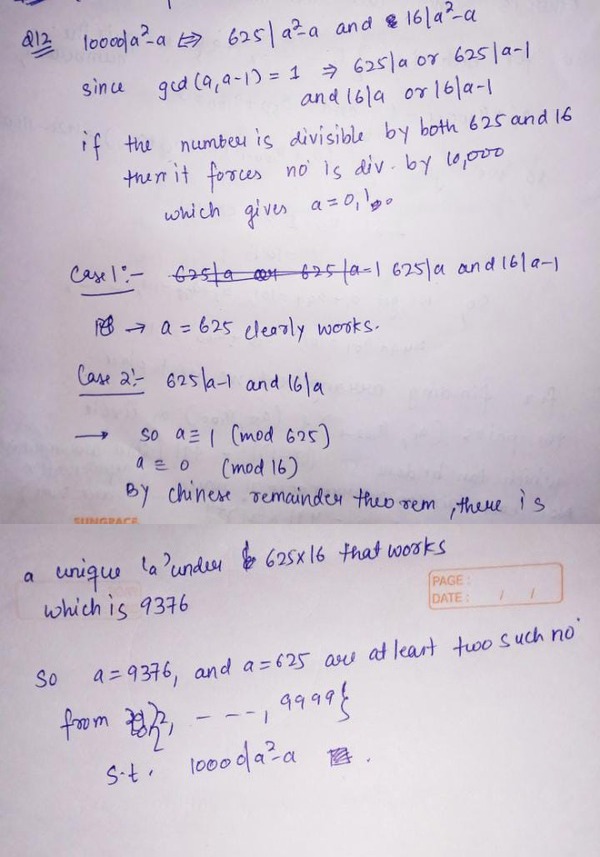 Q12 10000|a²-a ⇔ 625|a²-a and 16|a²-a
since gcd(a, a-1) = 1 ⇒ 625|a or 625|a-1
and 16|a or 16|a-1
if the number is divisible by both 625 and 16
then it forces no is div. by 10,000
which gives a=0,1.
Case 1:- 625|a or 625|a-1 625|a and 16|a-1
→ a = 625 clearly works.
Case 2:- 625|a-1 and 16|a
→ so a ≡ 1 (mod 625)
a ≡ 0 (mod 16)
By chinese remainder theorem, there is
SUNGRACE
a unique 'a' under 625×16 that works
which is 9376
PAGE :
DATE : / /
So a=9376, and a=625 are at least two such no
from {2, ----, 9999}
s.t. 10000|a²-a